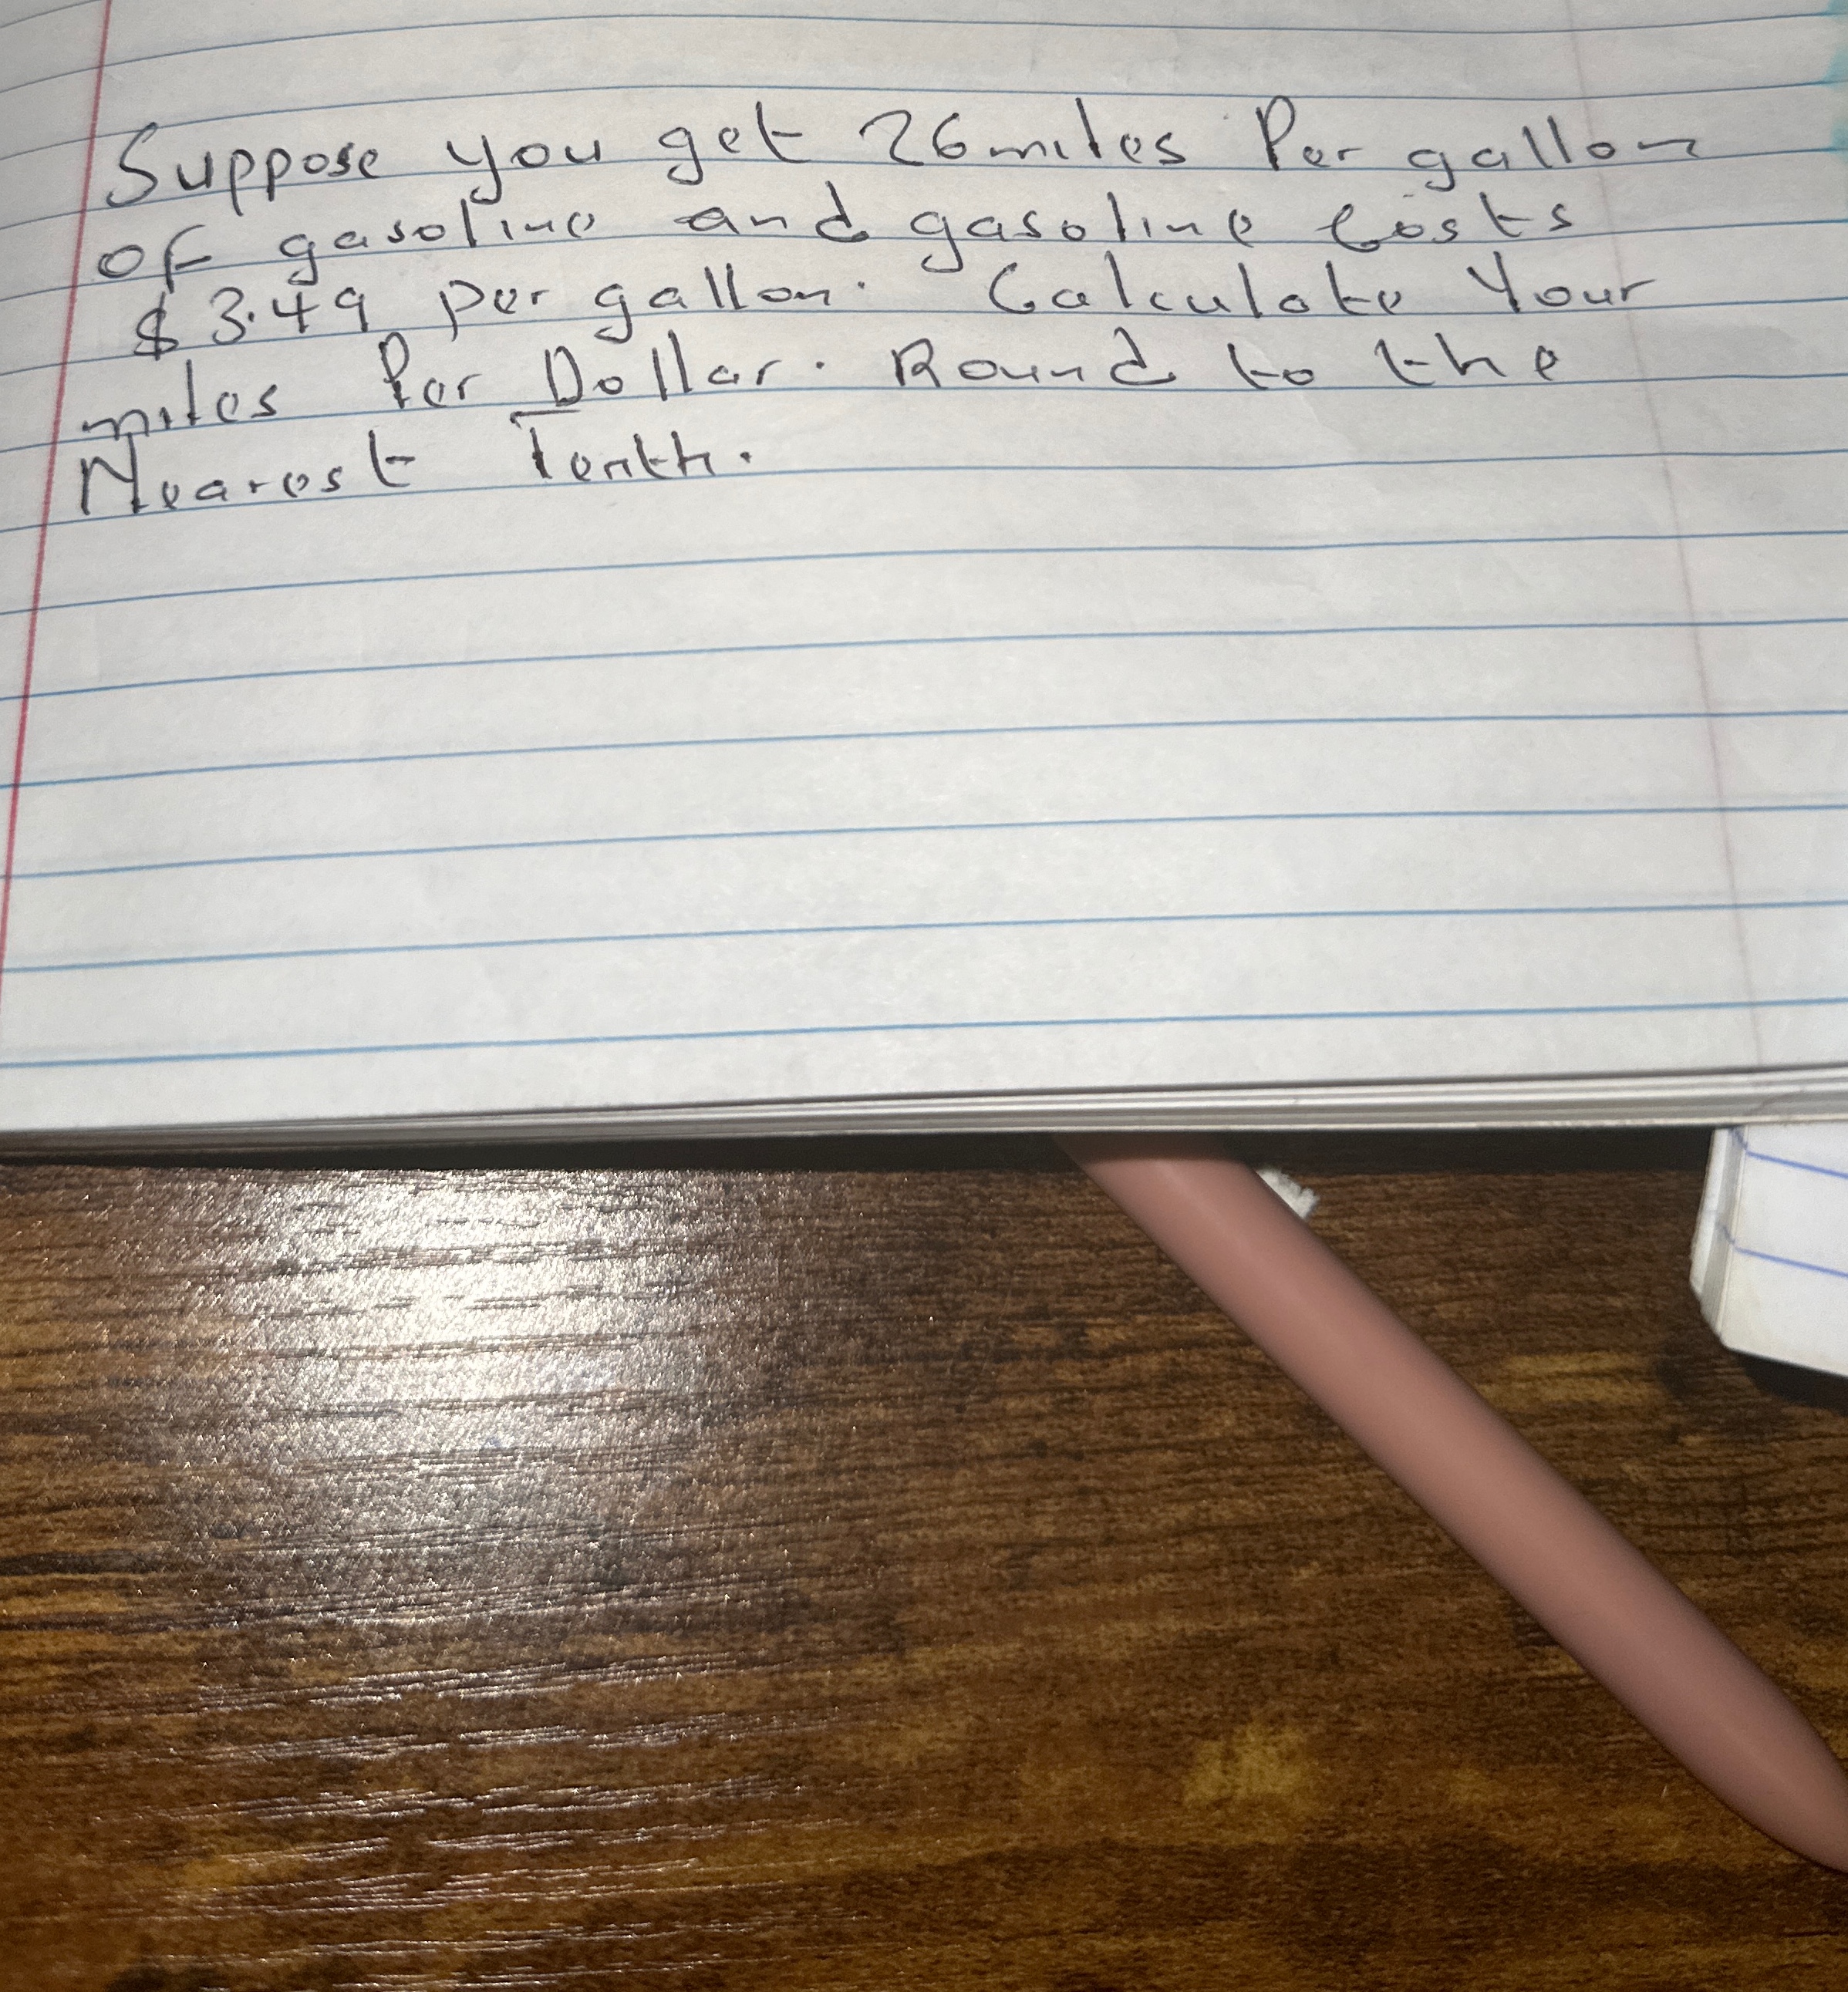 Suppose you get 26 miles Per gallon
of gasoline and gasoline costs
$3.49 per gallon. Calculate Your
miles Per Dollar. Round to the
Nearest Tenth.